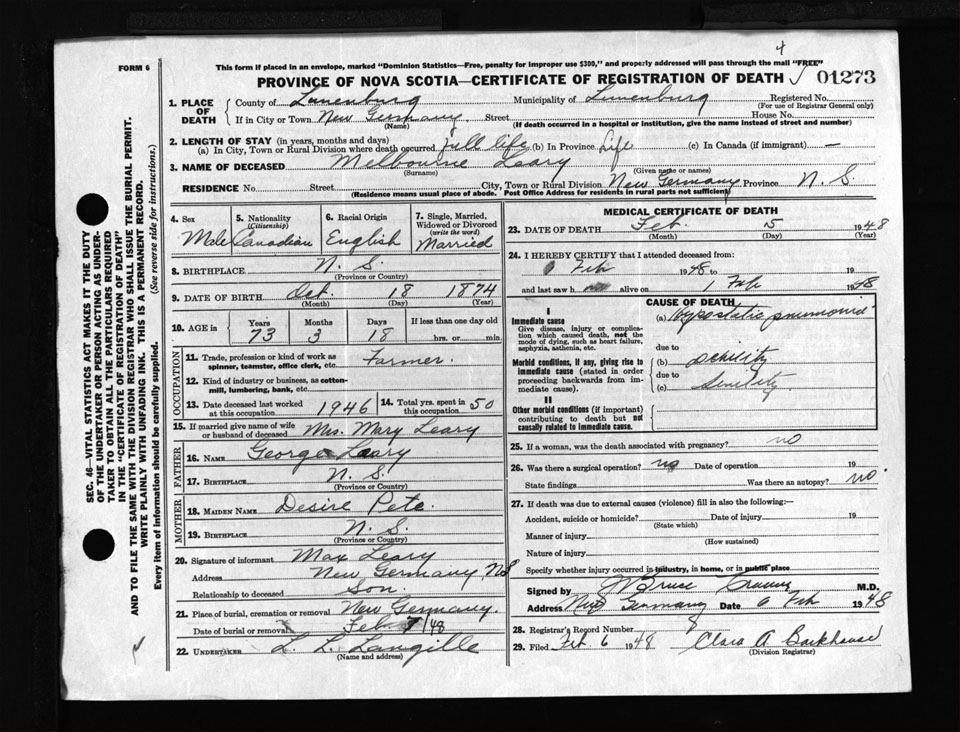 4
FORM 6
This form if placed in an envelope, marked "Dominion Statistics—Free, penalty for improper use $300," and properly addressed will pass through the mail "FREE"
PROVINCE OF NOVA SCOTIA—CERTIFICATE OF REGISTRATION OF DEATH 01273
1. PLACE OF DEATH
County of Lunenburg Municipality of Lunenburg Registered No.
(For use of Registrar General only)
If in City or Town New Germany Street House No.
(Name) (If death occurred in a hospital or institution, give the name instead of street and number)
2. LENGTH OF STAY (in years, months and days)
(a) In City, Town or Rural Division where death occurred full life (b) In Province Life (c) In Canada (if immigrant) —
3. NAME OF DECEASED Melbourne Leary
(Surname) (Given name or names)
RESIDENCE No. Street City, Town or Rural Division New Germany Province N. S.
(Residence means usual place of abode. Post Office Address for residents in rural parts not sufficient)
4. Sex
Male
5. Nationality
(Citizenship)
Canadian
6. Racial Origin
English
7. Single, Married, Widowed or Divorced
(write the word)
Married
8. BIRTHPLACE N. S.
(Province or Country)
9. DATE OF BIRTH Oct. 18 1874
(Month) (Day) (Year)
10. AGE in
Years Months Days If less than one day old
73 3 18 hrs. or min.
OCCUPATION
11. Trade, profession or kind of work as spinner, teamster, office clerk, etc. Farmer.
12. Kind of industry or business, as cotton-mill, lumbering, bank, etc.
13. Date deceased last worked at this occupation 1946
14. Total yrs. spent in this occupation 50
15. If married give name of wife or husband of deceased Mrs. Mary Leary
FATHER
16. Name George Leary
17. Birthplace N. S.
(Province or Country)
MOTHER
18. Maiden Name Desire Pete.
19. Birthplace N. S.
(Province or Country)
20. Signature of informant Max Leary
Address New Germany, NS
Relationship to deceased Son.
21. Place of burial, cremation or removal New Germany.
Date of burial or removal Feb 7/48
22. Undertaker L. L. Langille
(Name and address)
MEDICAL CERTIFICATE OF DEATH
23. DATE OF DEATH Feb. 5 1948
(Month) (Day) (Year)
24. I HEREBY CERTIFY that I attended deceased from:
Feb 1948 to 19
and last saw h alive on 1 Feb 1948
CAUSE OF DEATH
I
Immediate cause
Give disease, injury or complication which caused death, not the mode of dying, such as heart failure, asphyxia, asthenia, etc.
(a) Hypostatic pneumonia
due to
Morbid conditions, if any, giving rise to immediate cause (stated in order proceeding backwards from immediate cause).
(b) Debility
due to
(c) Senility
II
Other morbid conditions (if important) contributing to death but not causally related to immediate cause.
25. If a woman, was the death associated with pregnancy? no
26. Was there a surgical operation? no Date of operation 19
State findings Was there an autopsy? no
27. If death was due to external causes (violence) fill in also the following:—
Accident, suicide or homicide? Date of injury 19
(State which)
Manner of injury
(How sustained)
Nature of injury
Specify whether injury occurred in industry, in home, or in public place
Signed by M.D.
Address New Germany Date 6 Feb 1948
28. Registrar's Record Number 8
29. Filed Feb. 6 1948 Clara A Barkhouse
(Division Registrar)
SEC. 46—VITAL STATISTICS ACT MAKES IT THE DUTY
OF THE UNDERTAKER OR PERSON ACTING AS UNDER-
TAKER TO OBTAIN ALL THE PARTICULARS REQUIRED
IN THE "CERTIFICATE OF REGISTRATION OF DEATH"
AND TO FILE THE SAME WITH THE DIVISION REGISTRAR WHO SHALL ISSUE THE BURIAL PERMIT.
WRITE PLAINLY WITH UNFADING INK. THIS IS A PERMANENT RECORD.
Every item of information should be carefully supplied. (See reverse side for instructions.)